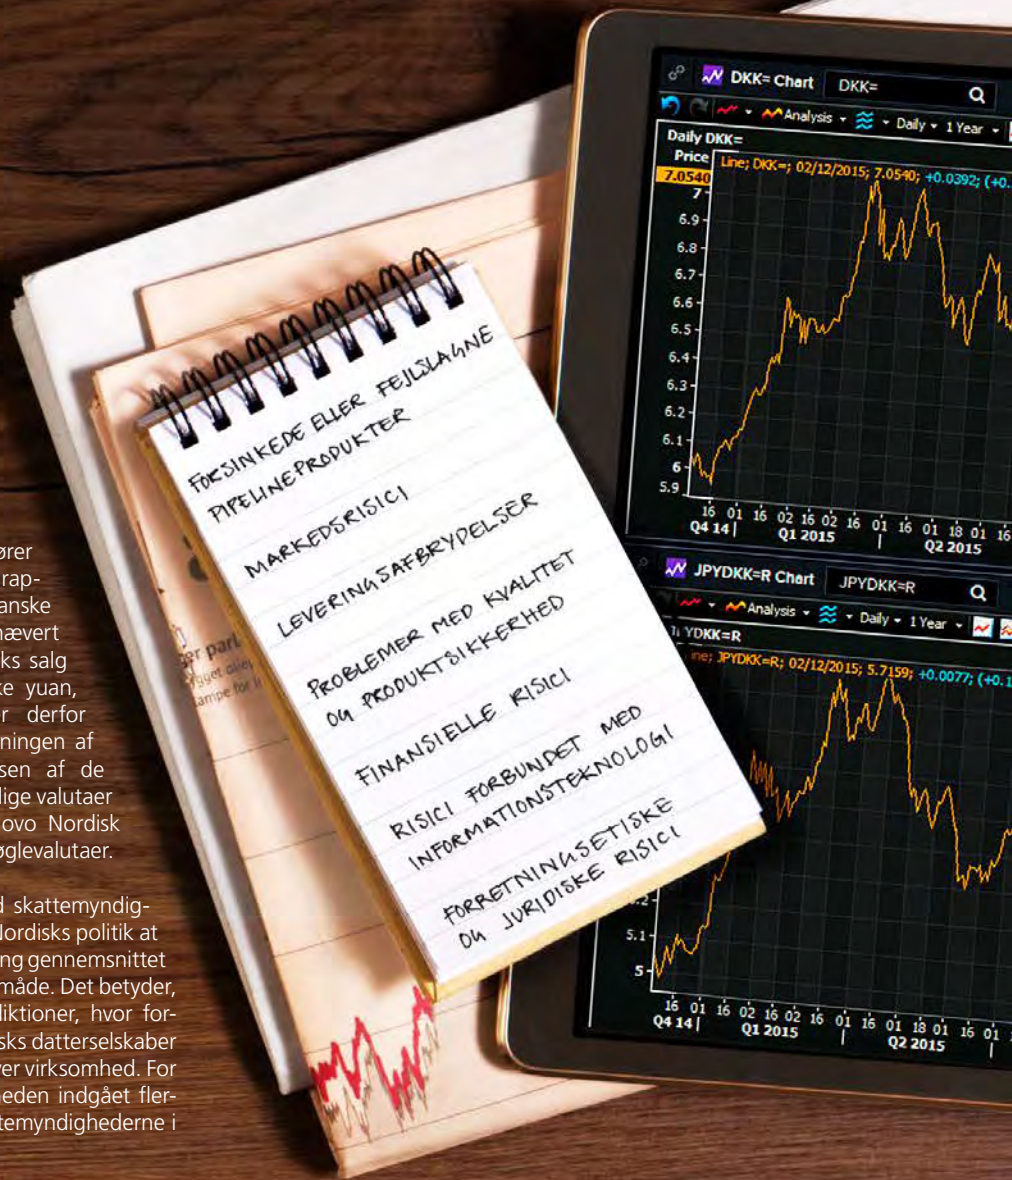 ører
rap-
anske
nævert
ks salg
ke yuan,
r derfor
ningen af
sen af de
lige valutaer
ovo Nordisk
øglevalutaer.
d skattemyndig-
Nordisks politik at
ng gennemsnittet
måde. Det betyder,
diktioner, hvor for-
sks datterselskaber
ver virksomhed. For
neden indgået fler-
temyndighederne i
FORSINKEDE ELLER FEJLSLAGNE
PIPELINEPRODUKTER
MARKEDSRISICI
LEVERINGSAFBRYDELSER
PROBLEMER MED KVALITET
OG PRODUKTSIKKERHED
FINANSIELLE RISICI
RISICI FORBUNDET MED
INFORMATIONSTEKNOLOGI
FORRETNINGSETISKE
OG JURIDISKE RISICI
DKK= Chart DKK=
Analysis Daily 1 Year
Daily DKK=
Price
Line; DKK=; 02/12/2015; 7.0540; +0.0392; (+0.
7.0540
7
6.9
6.8
6.7
6.6
6.5
6.4
6.3
6.2
6.1
6
5.9
16 01 16 02 16 02 16 01 16 01 18 01 16
Q4 14 Q1 2015 Q2 2015
JPYDKK=R Chart JPYDKK=R
Analysis Daily 1 Year
YDKK=R
ne; JPYDKK=R; 02/12/2015; 5.7159; +0.0077; (+0.1
.2
5.1
5
16 01 16 02 16 02 16 01 16 01 18 01 16 01
Q4 14 Q1 2015 Q2 2015